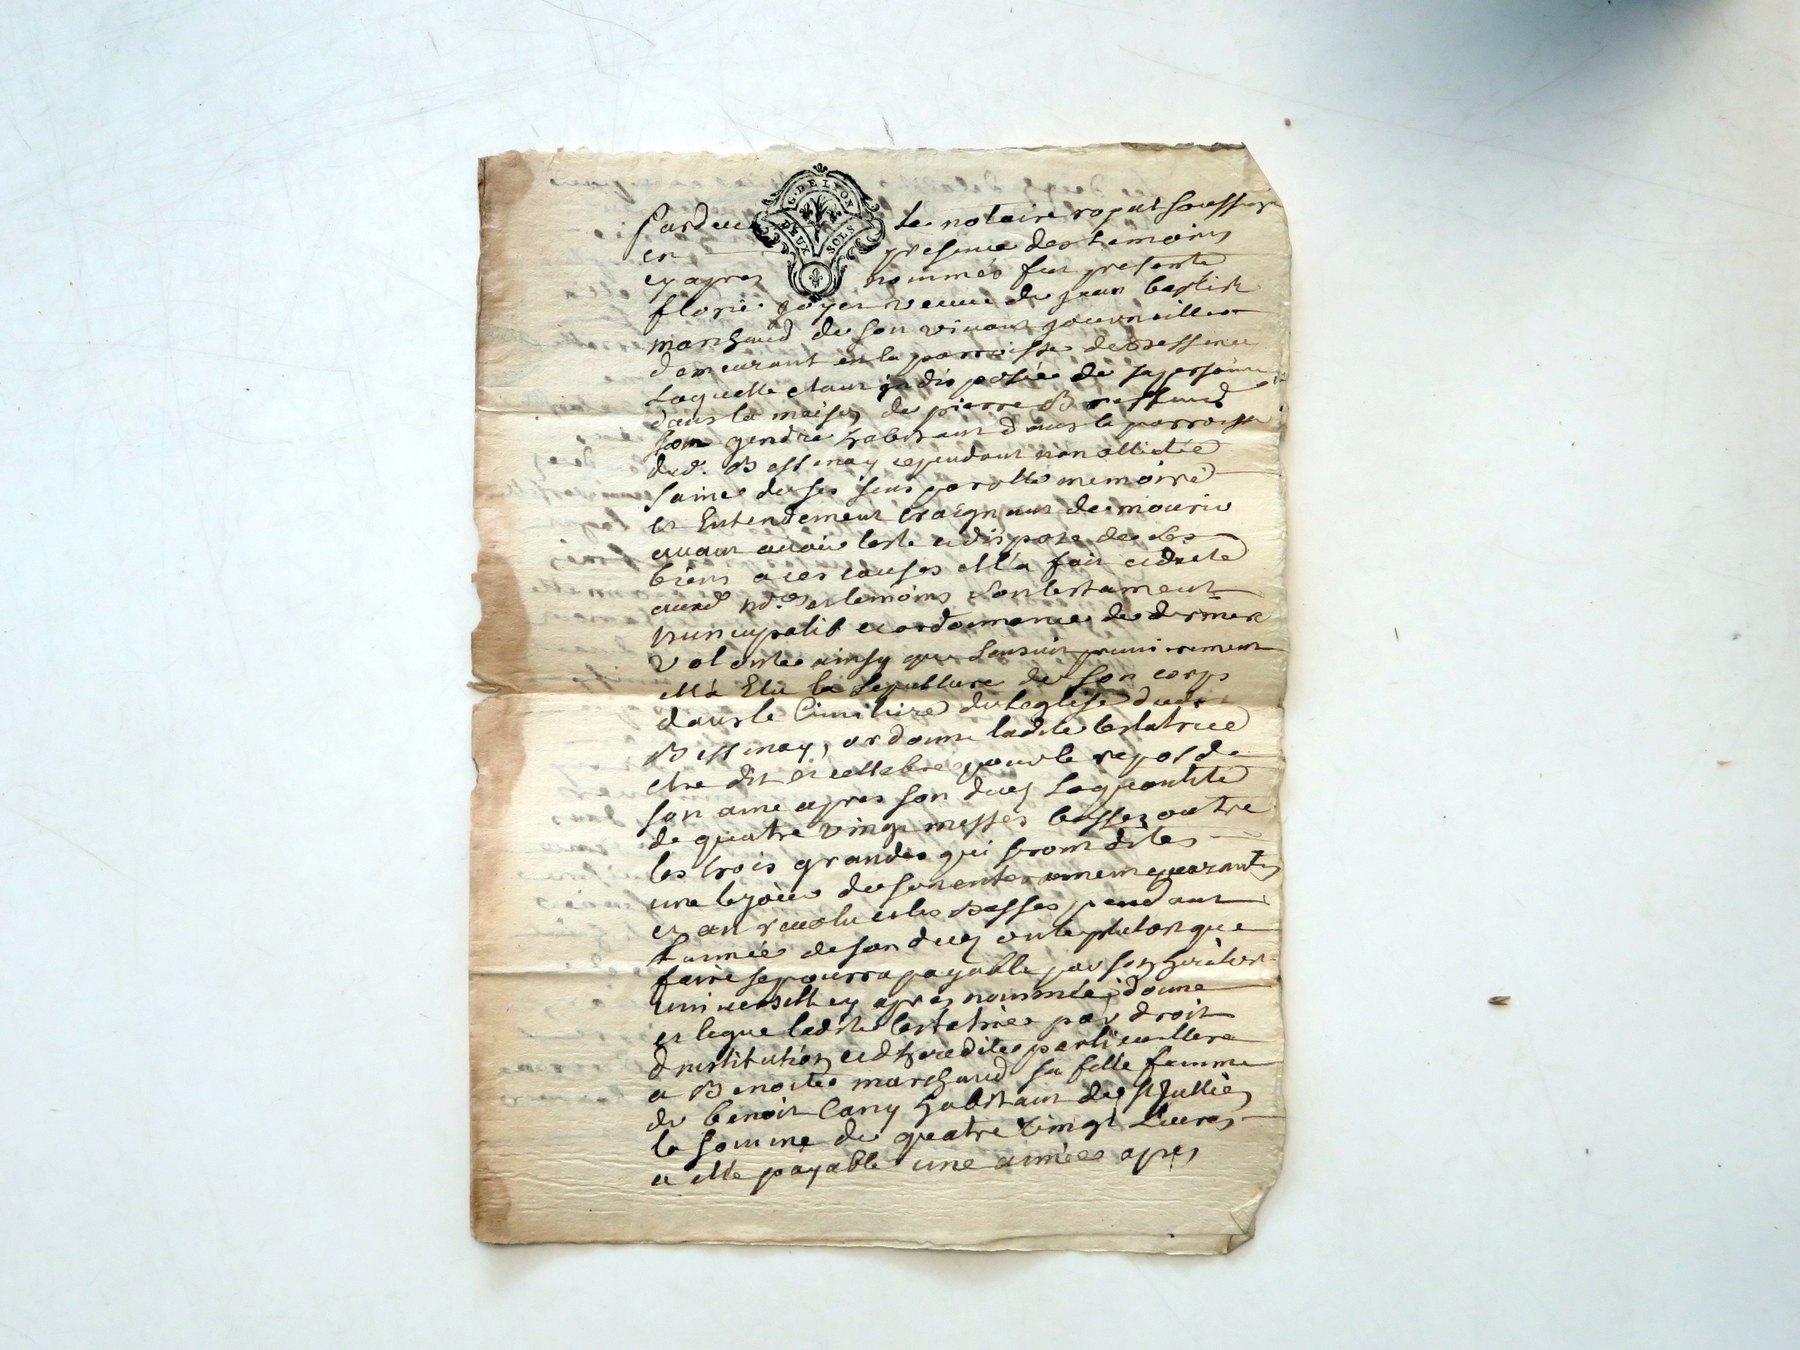 G. DE LYON
DEUX SOLS
Pardevt Le notaire royal soussigné
en presence des temoins
cy apres nommés fut presente
florie goyet veuve de jean baptiste
marchand de son vivant journaillier
demeurant en la parroisse de Bessenay
Laquelle etant indisposée de sa personne
dans la maison de pierre
son gendre habitant dans la parroisse
dud. Bessenay cependant non allictée
saine de ses sens parolle memoire
et Entendement craignant de mourir
avant avoir testé et disposé de ses
biens a ces causes elle a fait et dicté
auxd. nd. et temoins son testament
nuncupatif et ordonnance de derniere
volonté ainsy que sensuit premierement
elle a Elu la sepulture de son corps
dans le Cimitiere de leglise dud.
Bessenay, ordonne ladite testatrice
etre dit et cellebré pour le repos de
son ame apres son deces la quantité
de quatre vingt messes basses outre
les trois grandes qui seront dites
une le jour de son enterrement quarantes
et an revolu et les Basses pendant
Lannée de son deces ou le plutot que
faire se pourra payable par son heritier
universelle cy apres nommée, donne
et legue ladite testatrice par droit
dinstitution et dheredite particulliere
a Benoite marchand sa fille femme
de benoit Cany habitant de St Jullien
la somme de quatre vingt Livres
a elle payable une année apres